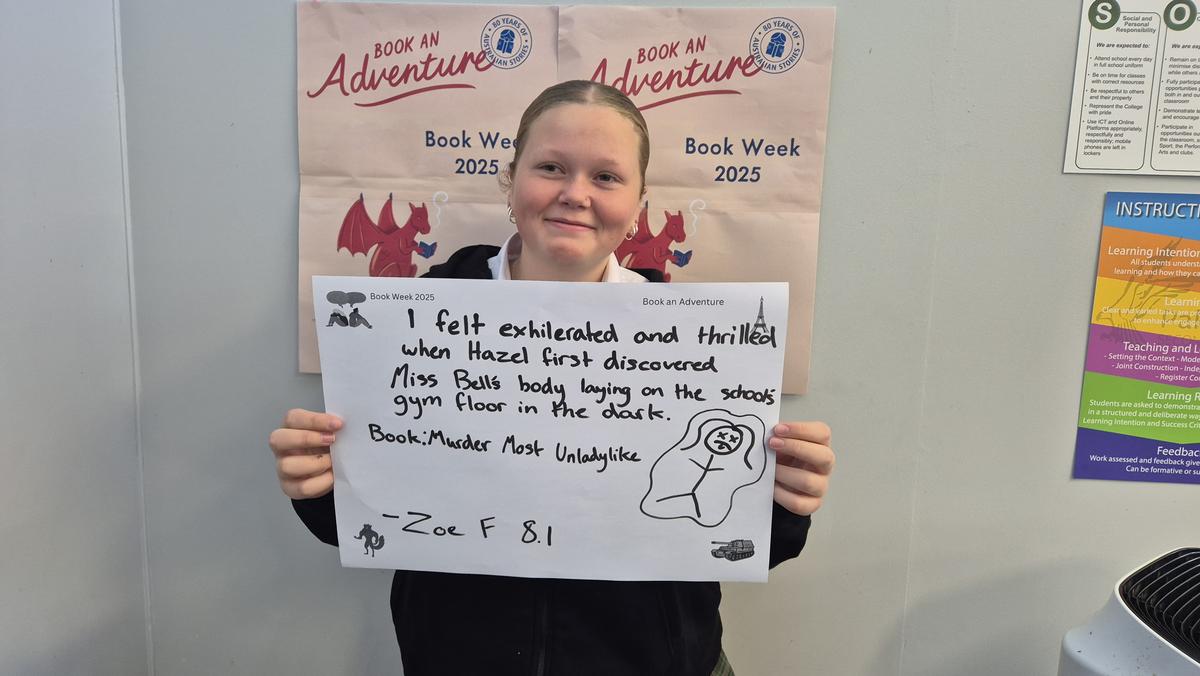 BOOK AN
Adventure
80 YEARS OF
AUSTRALIAN STORIES
Book Wee
2025
BOOK AN
Adventure
80 YEARS OF
AUSTRALIAN STORIES
Book Week
2025
Book Week 2025
Book an Adventure
I felt exhilerated and thrilled
when Hazel first discovered
Miss Bell's body laying on the school's
gym floor in the dark.
Book: Murder Most Unladylike
- Zoe F 8.1
S
Social and
Personal
Responsibility
We are expected to:
• Attend school every day
in full school uniform
• Be on time for classes
with correct resources
• Be respectful to others
and their property
• Represent the College
with pride
• Use ICT and Online
Platforms appropriately,
respectfully and
responsibly; mobile
phones are left in
lockers
O
We are exp
• Remain on t
minimise dis
while others
• Fully particip
opportunities
both in and ou
classroom
• Demonstrate
and encourage
• Participate in
opportunities ou
the classroom, s
Sport, the Perfor
Arts and clubs.
INSTRUCTI
Learning Intention
All students underst
learning and how they ca
Learnin
Clear and varied tasks are pro
to enhance engage
Teaching and L
- Setting the Context - Mode
- Joint Construction - Inde
- Register Con
Learning R
Students are asked to demonstra
in a structured and deliberate way
Learning Intention and Success Crit
Feedbac
Work assessed and feedback give
Can be formative or su